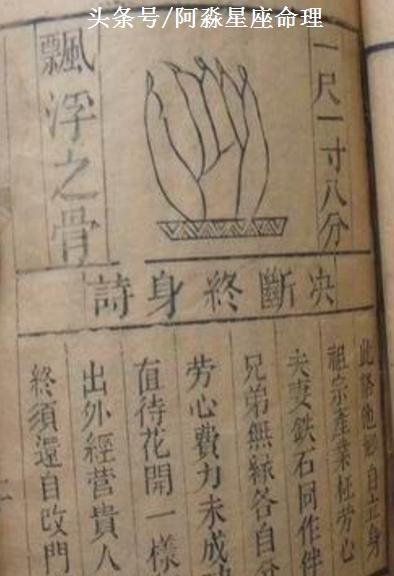 头条号/阿淼星座命理
一尺一寸八分
飄浮之骨
决斷終身詩
此骼他鄉自立身
祖宗產業枉劳心
夫妻鉄石同作伴
兄弟無緣各自
劳心費力未成
直待花開一樣
出外經營貴人
終須還自改門